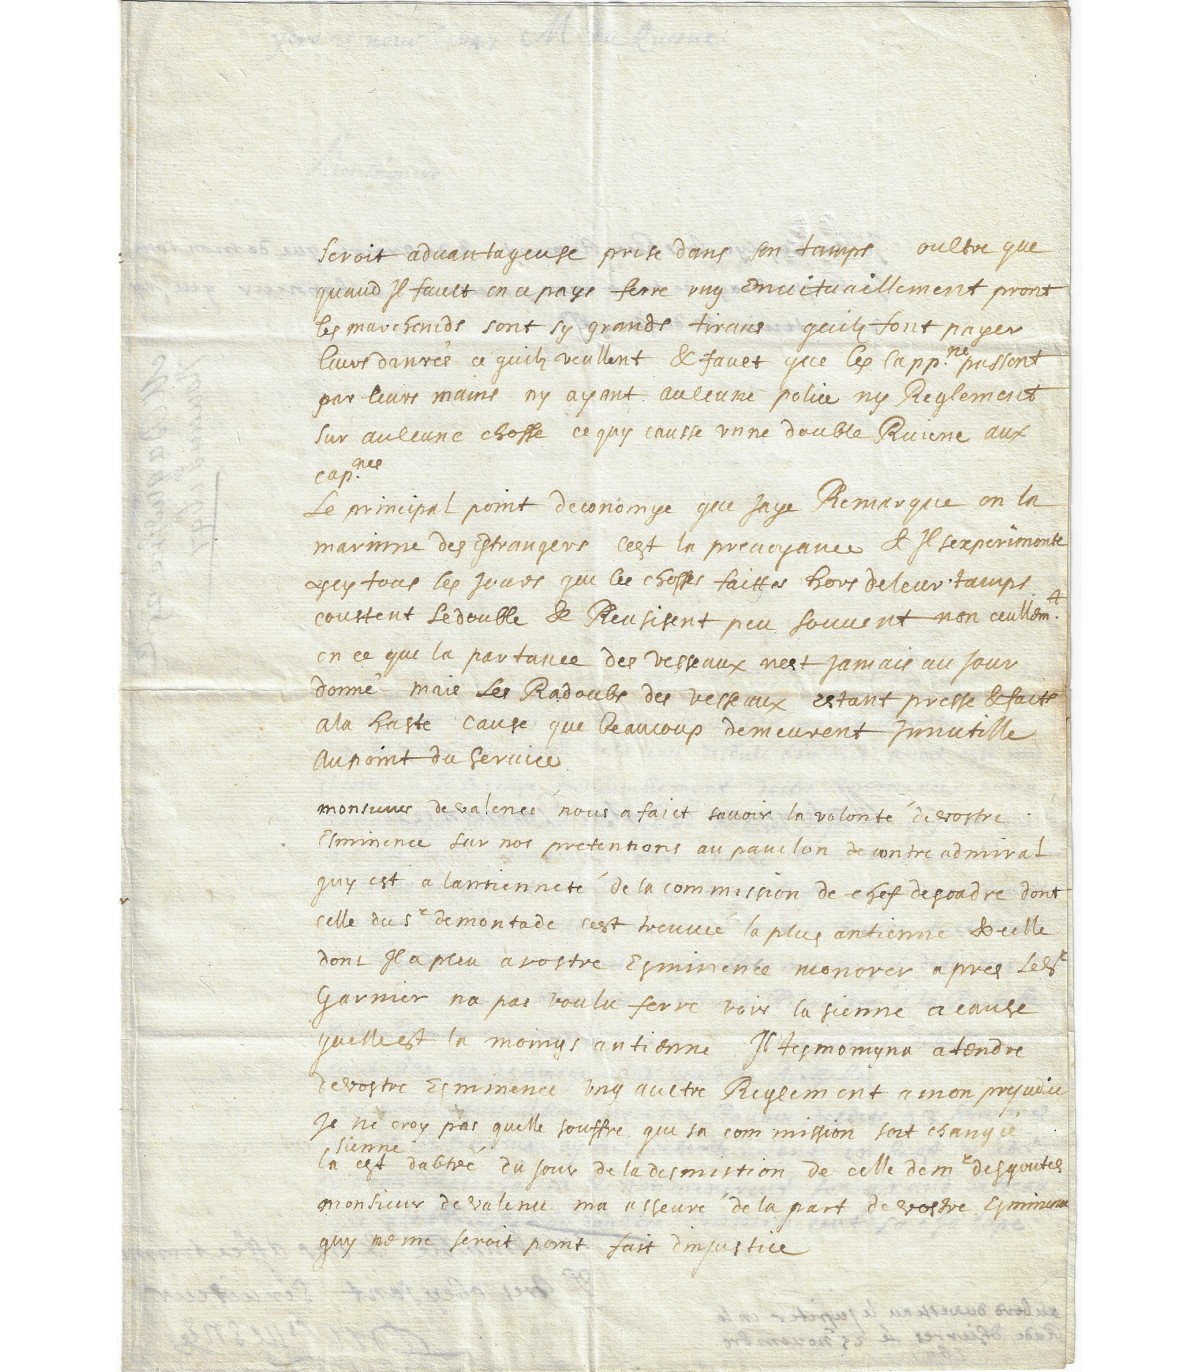 seroit aduantageuse prise dans son tamps oultre que
quand Il fault en ce pays ferre vng enuituaillement pront
les marchends sont sy grands tirans quils font payer
leurs danrés ce quils veullent & fauet que les capp.nes passent
par leurs mains ny ayant auleune police ny Reglement
sur auleune chosse ce quy causse vnne double Ruiene aux
cap.nes
Le principal point deconomye que Jaye Remarque en la
marinne des Estrangers cest la preuoyance & Il sexperimente
ysy tous les Jours que les chosses faittes hors de leur tamps
coustent le double & Reusisent peu souuent non ceullem.t
en ce que la partance des vesseaux nest Jamais au Jour
donné mais Les Radoubs des vesseaux estant presse & faits
a la haste cause que beaucoup demeurent Jnnutille
au point du seruice
monsieur de valencé nous a faict sauoir la volonté de vostre
Esminence sur nos pretentions au pauelon de contre admiral
quy est a lantienneté de la commission de chef desqadre dont
celle du s.r de montade sest treuueé la plus antienne & celle
dont Il a pleu a vostre Esminence monorer apres Le s.r
Garnier na pas voulu ferre voir la sienne a cause
quelle est la moinys antienne Il tesmomyna atendre
de vostre Esminence vng aultre Reglement a mon prejudice
Je ne croy pas quelle souffre que sa commission soit changée
sienne
la est dabtré du Jour de la desmistion de celle de m.r desgoutes
monsieur de valence ma asseuré de la part de vostre Esminence
quy ne me seroit point fait dinjustice